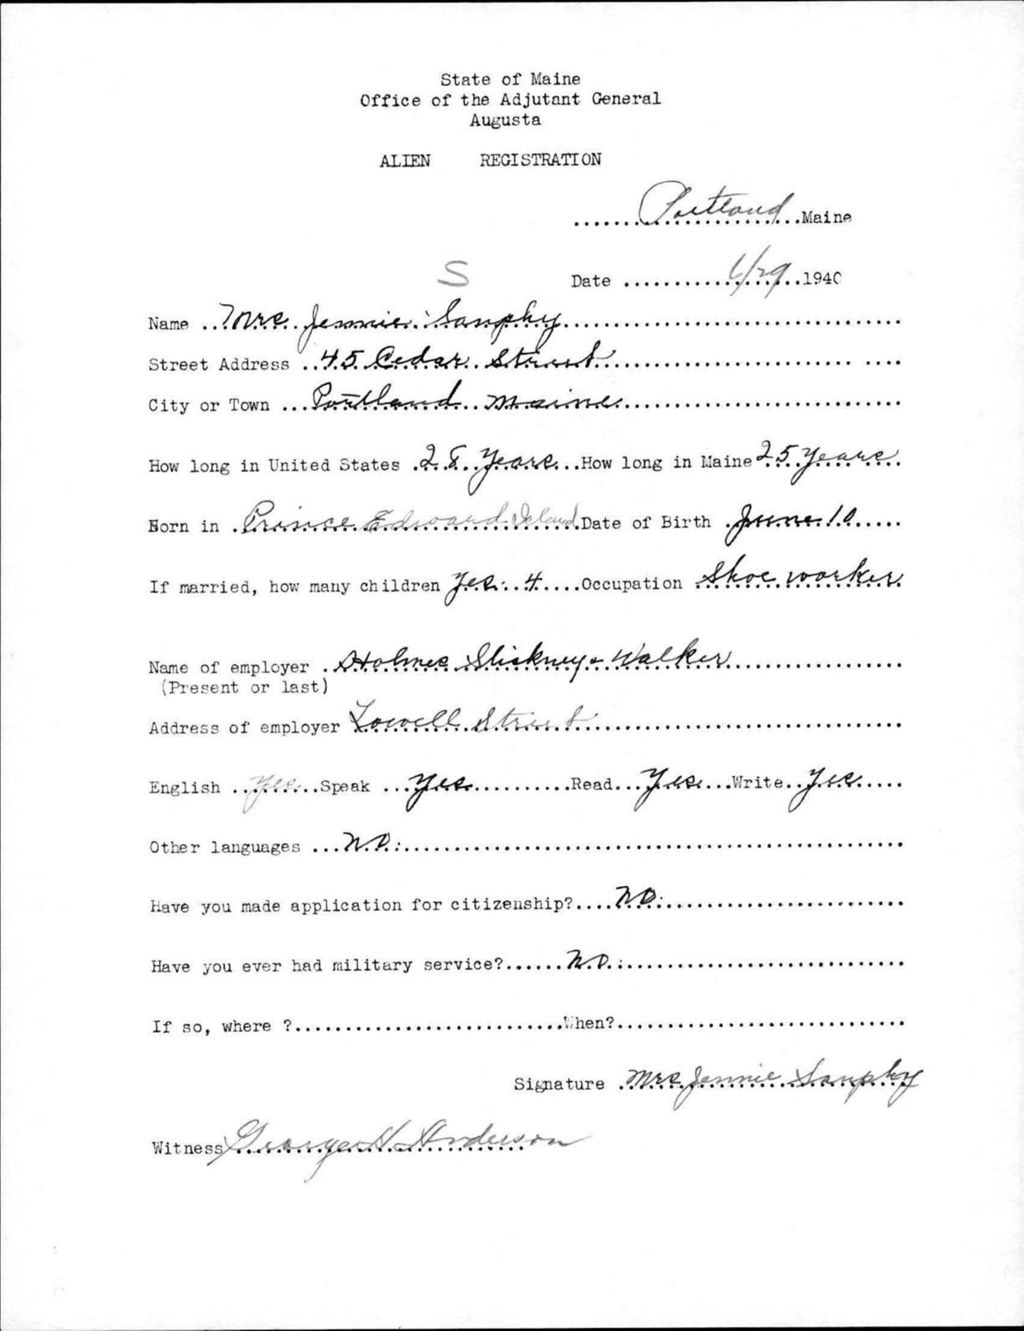 State of Maine
Office of the Adjutant General
Augusta
ALIEN REGISTRATION
Portland Maine
S
Date 6/29 1940
Name Mrs. Jennie Sanphy
Street Address 45 Cedar Street
City or Town Portland Maine
How long in United States 25 Years How long in Maine 25 Years
Born in Prince Edward Island Date of Birth June 10
If married, how many children Yes. 4 Occupation Shoe worker
Name of employer Holmes Stickney & Walker
(Present or last)
Address of employer Lowell Street
English Yes Speak Yes Read Yes Write Yes
Other languages No.
Have you made application for citizenship? No.
Have you ever had military service? No.
If so, where ? When?
Signature Mrs Jennie Sanphy
Witness George H Anderson